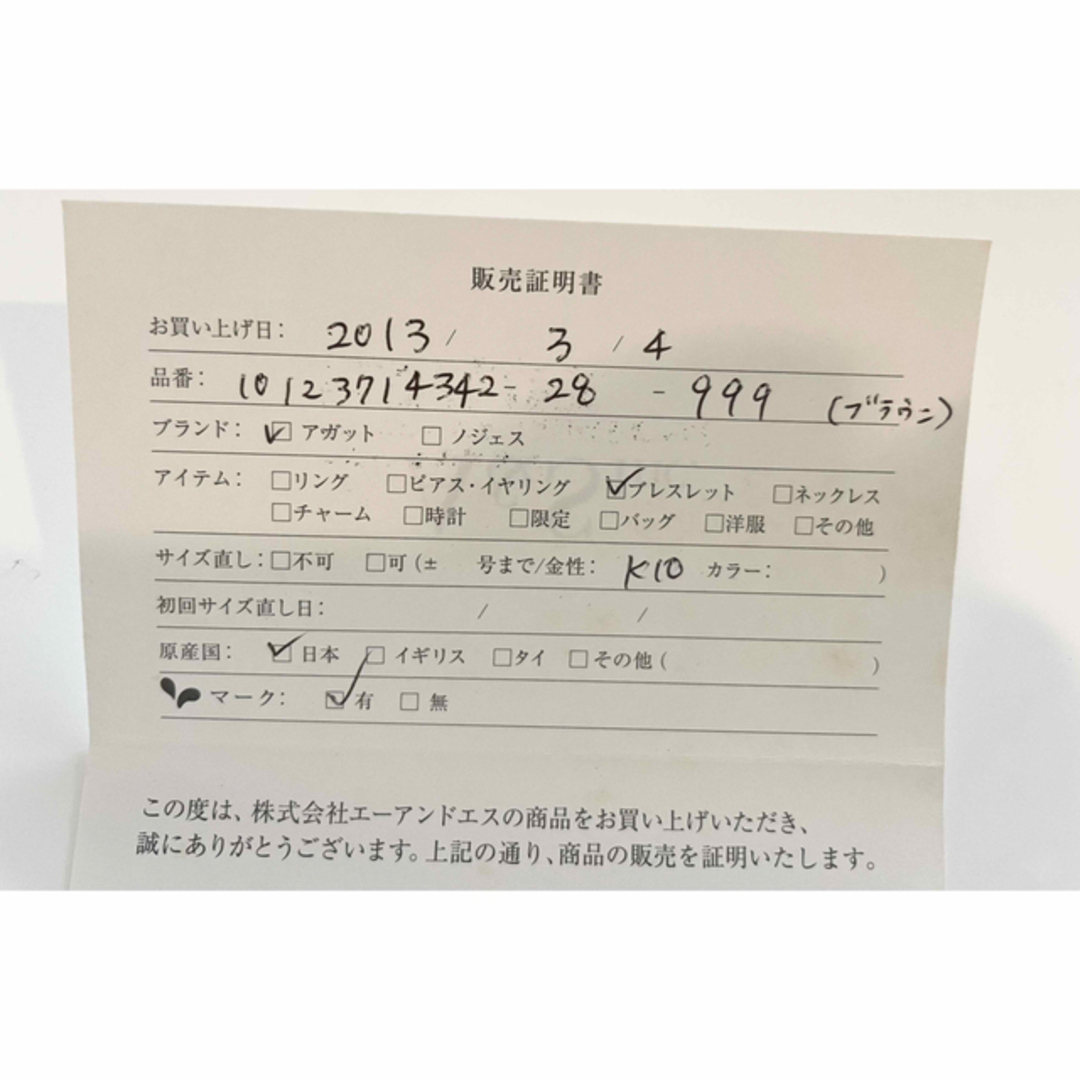 販売証明書
お買い上げ日: 2013 / 3 / 4
品番: 10123714342-28 - 999 (ブラウン)
ブランド: ☑ アガット □ ノジェス
アイテム: □リング □ピアス・イヤリング ☑ブレスレット □ネックレス
□チャーム □時計 □限定 □バッグ □洋服 □その他
サイズ直し: □不可 □可 (± 号まで/金性: K10 カラー: )
初回サイズ直し日: / /
原産国: ☑ 日本 □ イギリス □タイ □その他 ( )
マーク: ☑ 有 □ 無
この度は、株式会社エーアンドエスの商品をお買い上げいただき、
誠にありがとうございます。上記の通り、商品の販売を証明いたします。